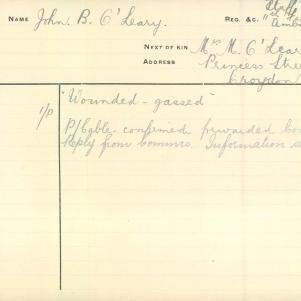 NAME John. B. O'Leary. REG. &c.
NEXT OF KIN Mrs M. O'Lear
ADDRESS Princess Stre
Croydon
1/P "Wounded - gassed"
P/Cable. confirmed forwarded
Reply from Commrs. Information